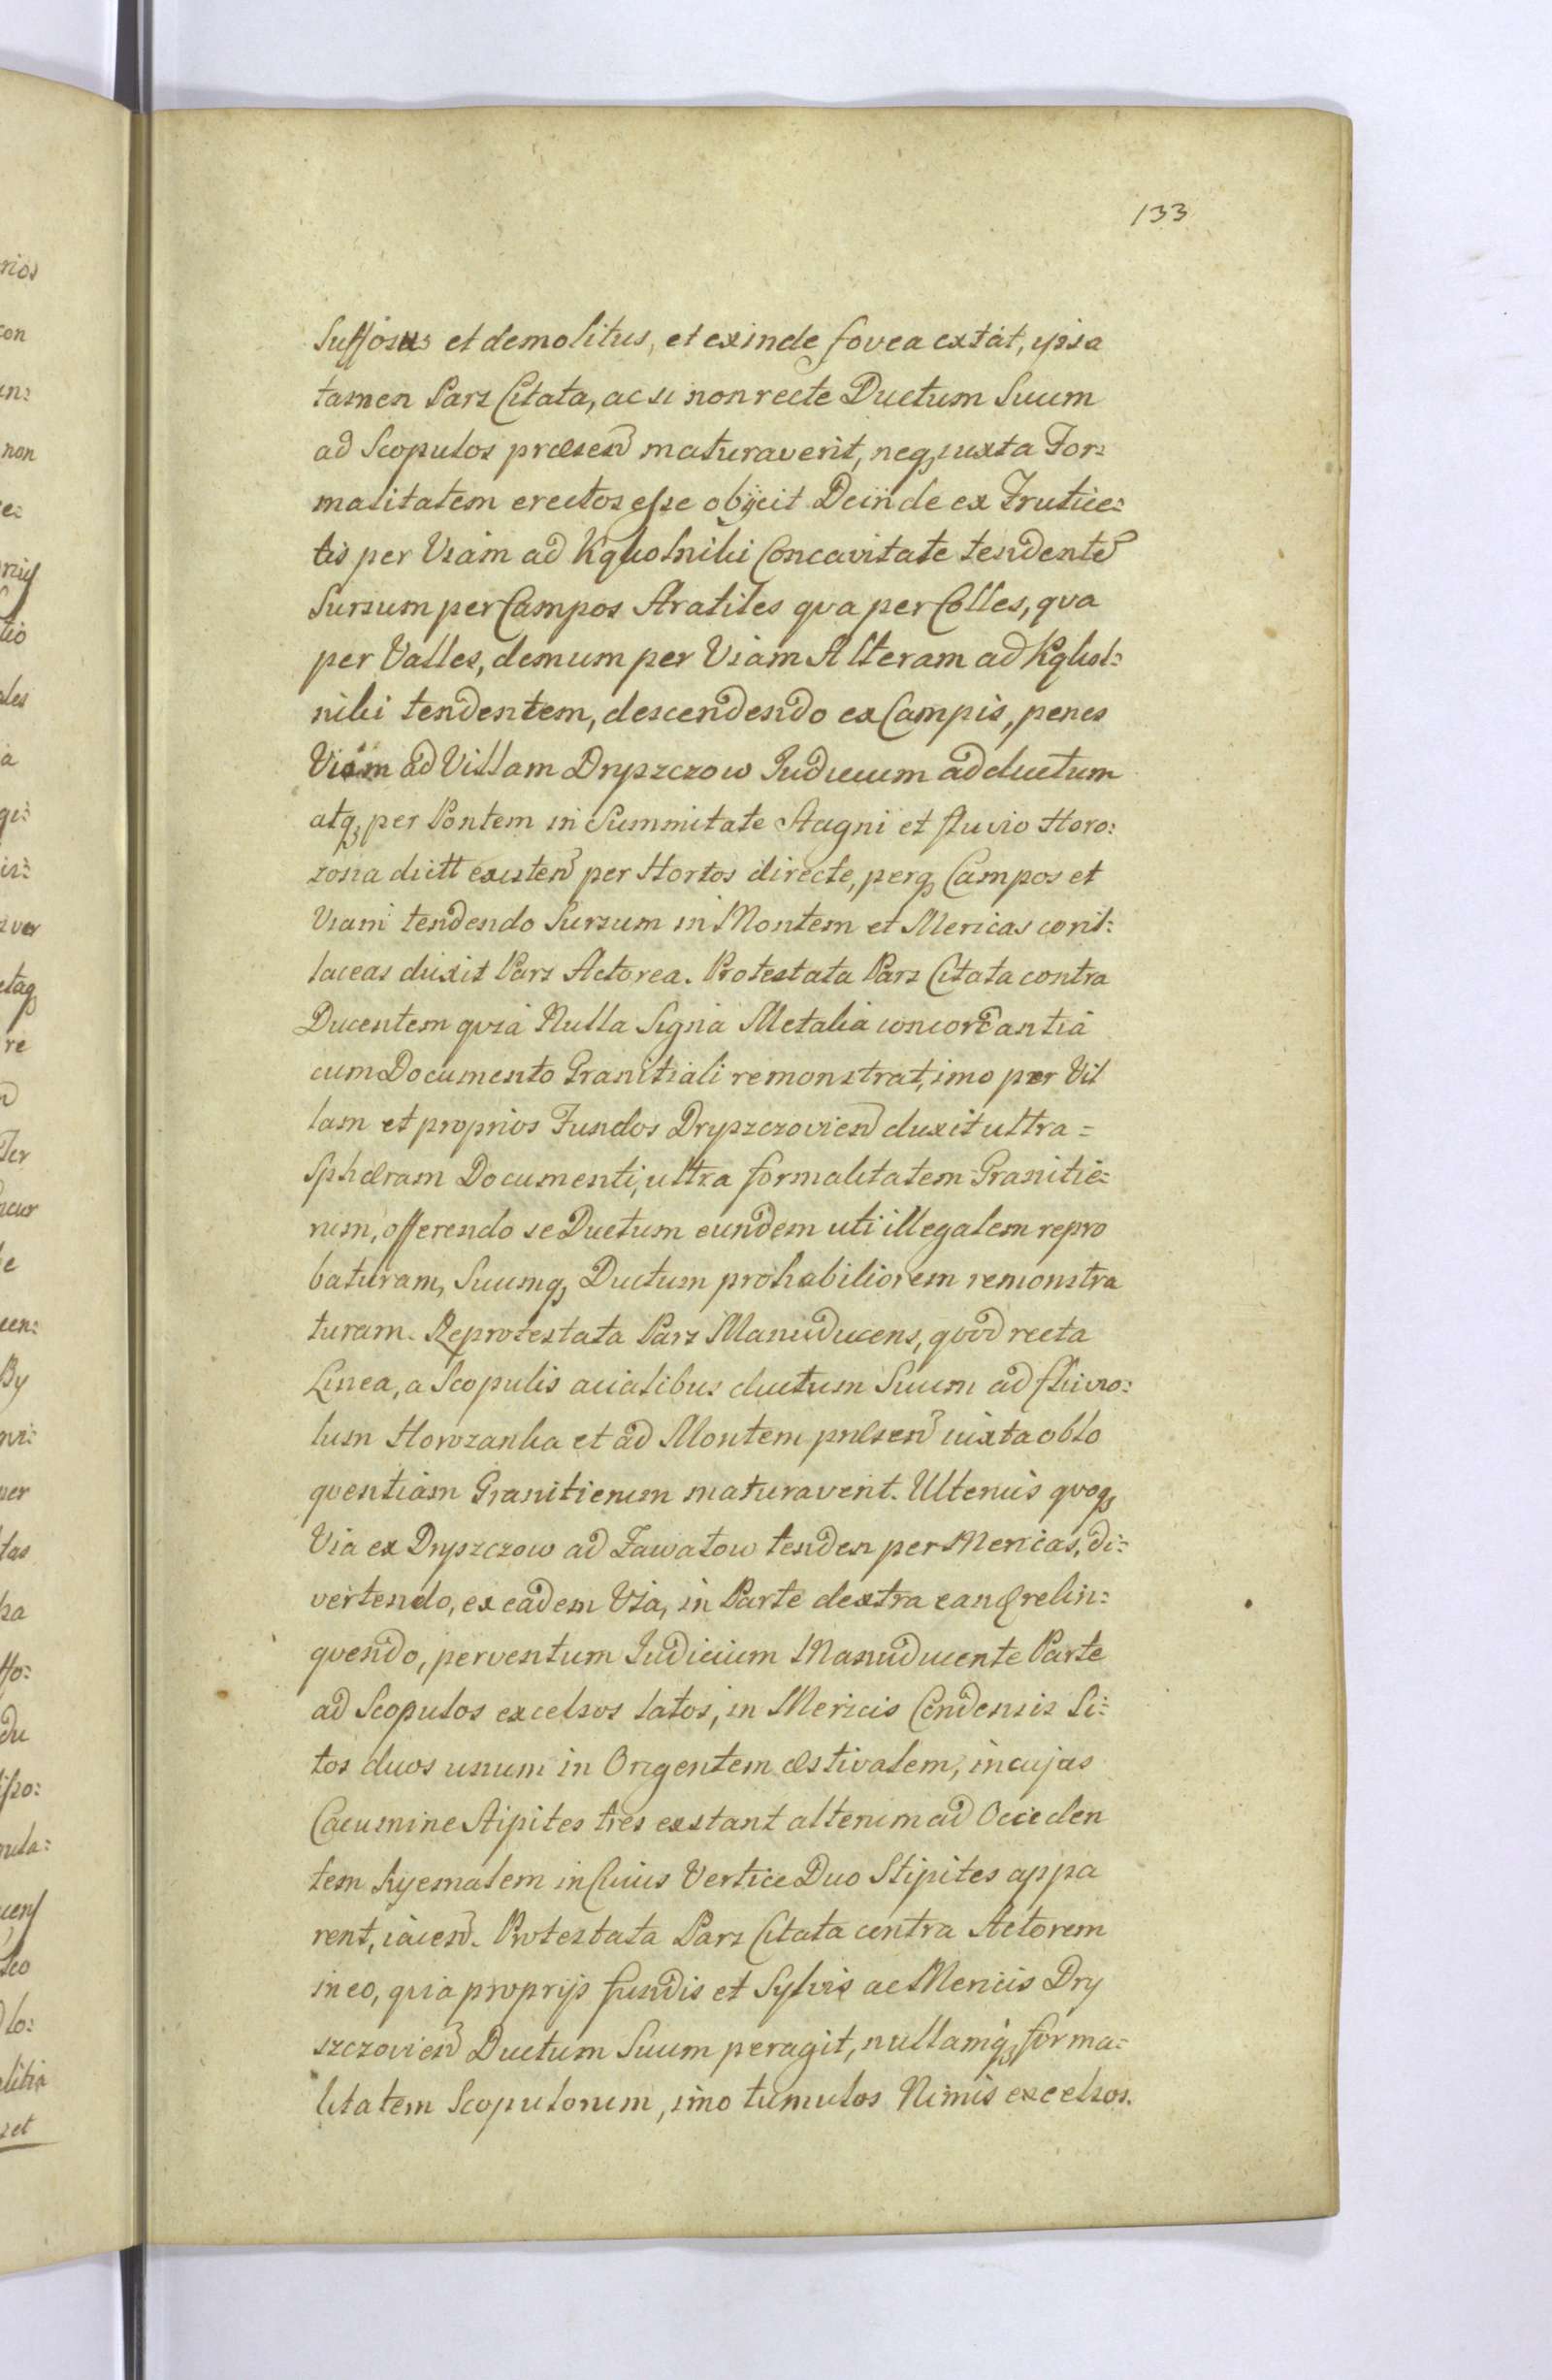 133
Suffosus et demolitus, et exinde fovea extat, ipsa
tamen Pars Citata, ac si non recte Ductum Suum
ad Scopulos præsen maturaverit, neq iuxta For:
malitatem erectos esse obijcit Deinde ex Frutice:
tis per Viam ad Kąkolniki Concavitate tendente
Sursum per Campos Aratiles qva per Colles, qva
per Valles, demum per Viam Alteram ad Kąkol:
niki tendentem, descendendo ex Campis, penes
Viam ad Villam Dryszczow Iudicium adductum
atq per Pontem in Summitate Stagni et fluvio Horo:
zona dictt existen per Hortos directe, perq Campos et
Viam tendendo Sursum in Montem et Mericas coril:
laceas duxit Pars Actorea. Protestata Pars Citata contra
Ducentem qvia Nulla Signa Metalia concordantia
cum Documento Granitiali remonstrat, imo per Vil
lam et proprios Fundos Dryszczovien duxit ultra =
Sphæram Documenti, ultra formalitatem Granitie:
rum, offerendo se Ductum eundem uti illegalem repro
baturam, Suumq Ductum probabiliorem remonstra
turam. Reprotestata Pars Manuducens, qvod recta
Linea, a Scopulis acialibus ductum Suum ad fluvio:
lum Horozanka et ad Montem præsen iuxta oblo
qventiam Granitierum maturaverit. Ulterius qvoq
Via ex Dryszczow ad Zawatow tenden per Mericas, di:
vertendo, ex eadem Via, in Parte dextra eanq relin:
qvendo, perventum Iudicium Manuducente Parte
ad Scopulos excelsos latos, in Mericis Condensis Si:
tos duos unum in Origentem æstivalem, in cujas
Cacumine Stipites tres exstant alterum ad Occiden
tem hyemalem in Cuius Vertice Duo Stipites appa
rent, iacen. Protestata Pars Citata contra Actorem
in eo, qvia proprijs fundis et Sylvis ac Mericis Dry
szczovien Ductum Suum peragit, nullamq forma=
litatem Scopulorum, imo tumulos Nimis excelsos.